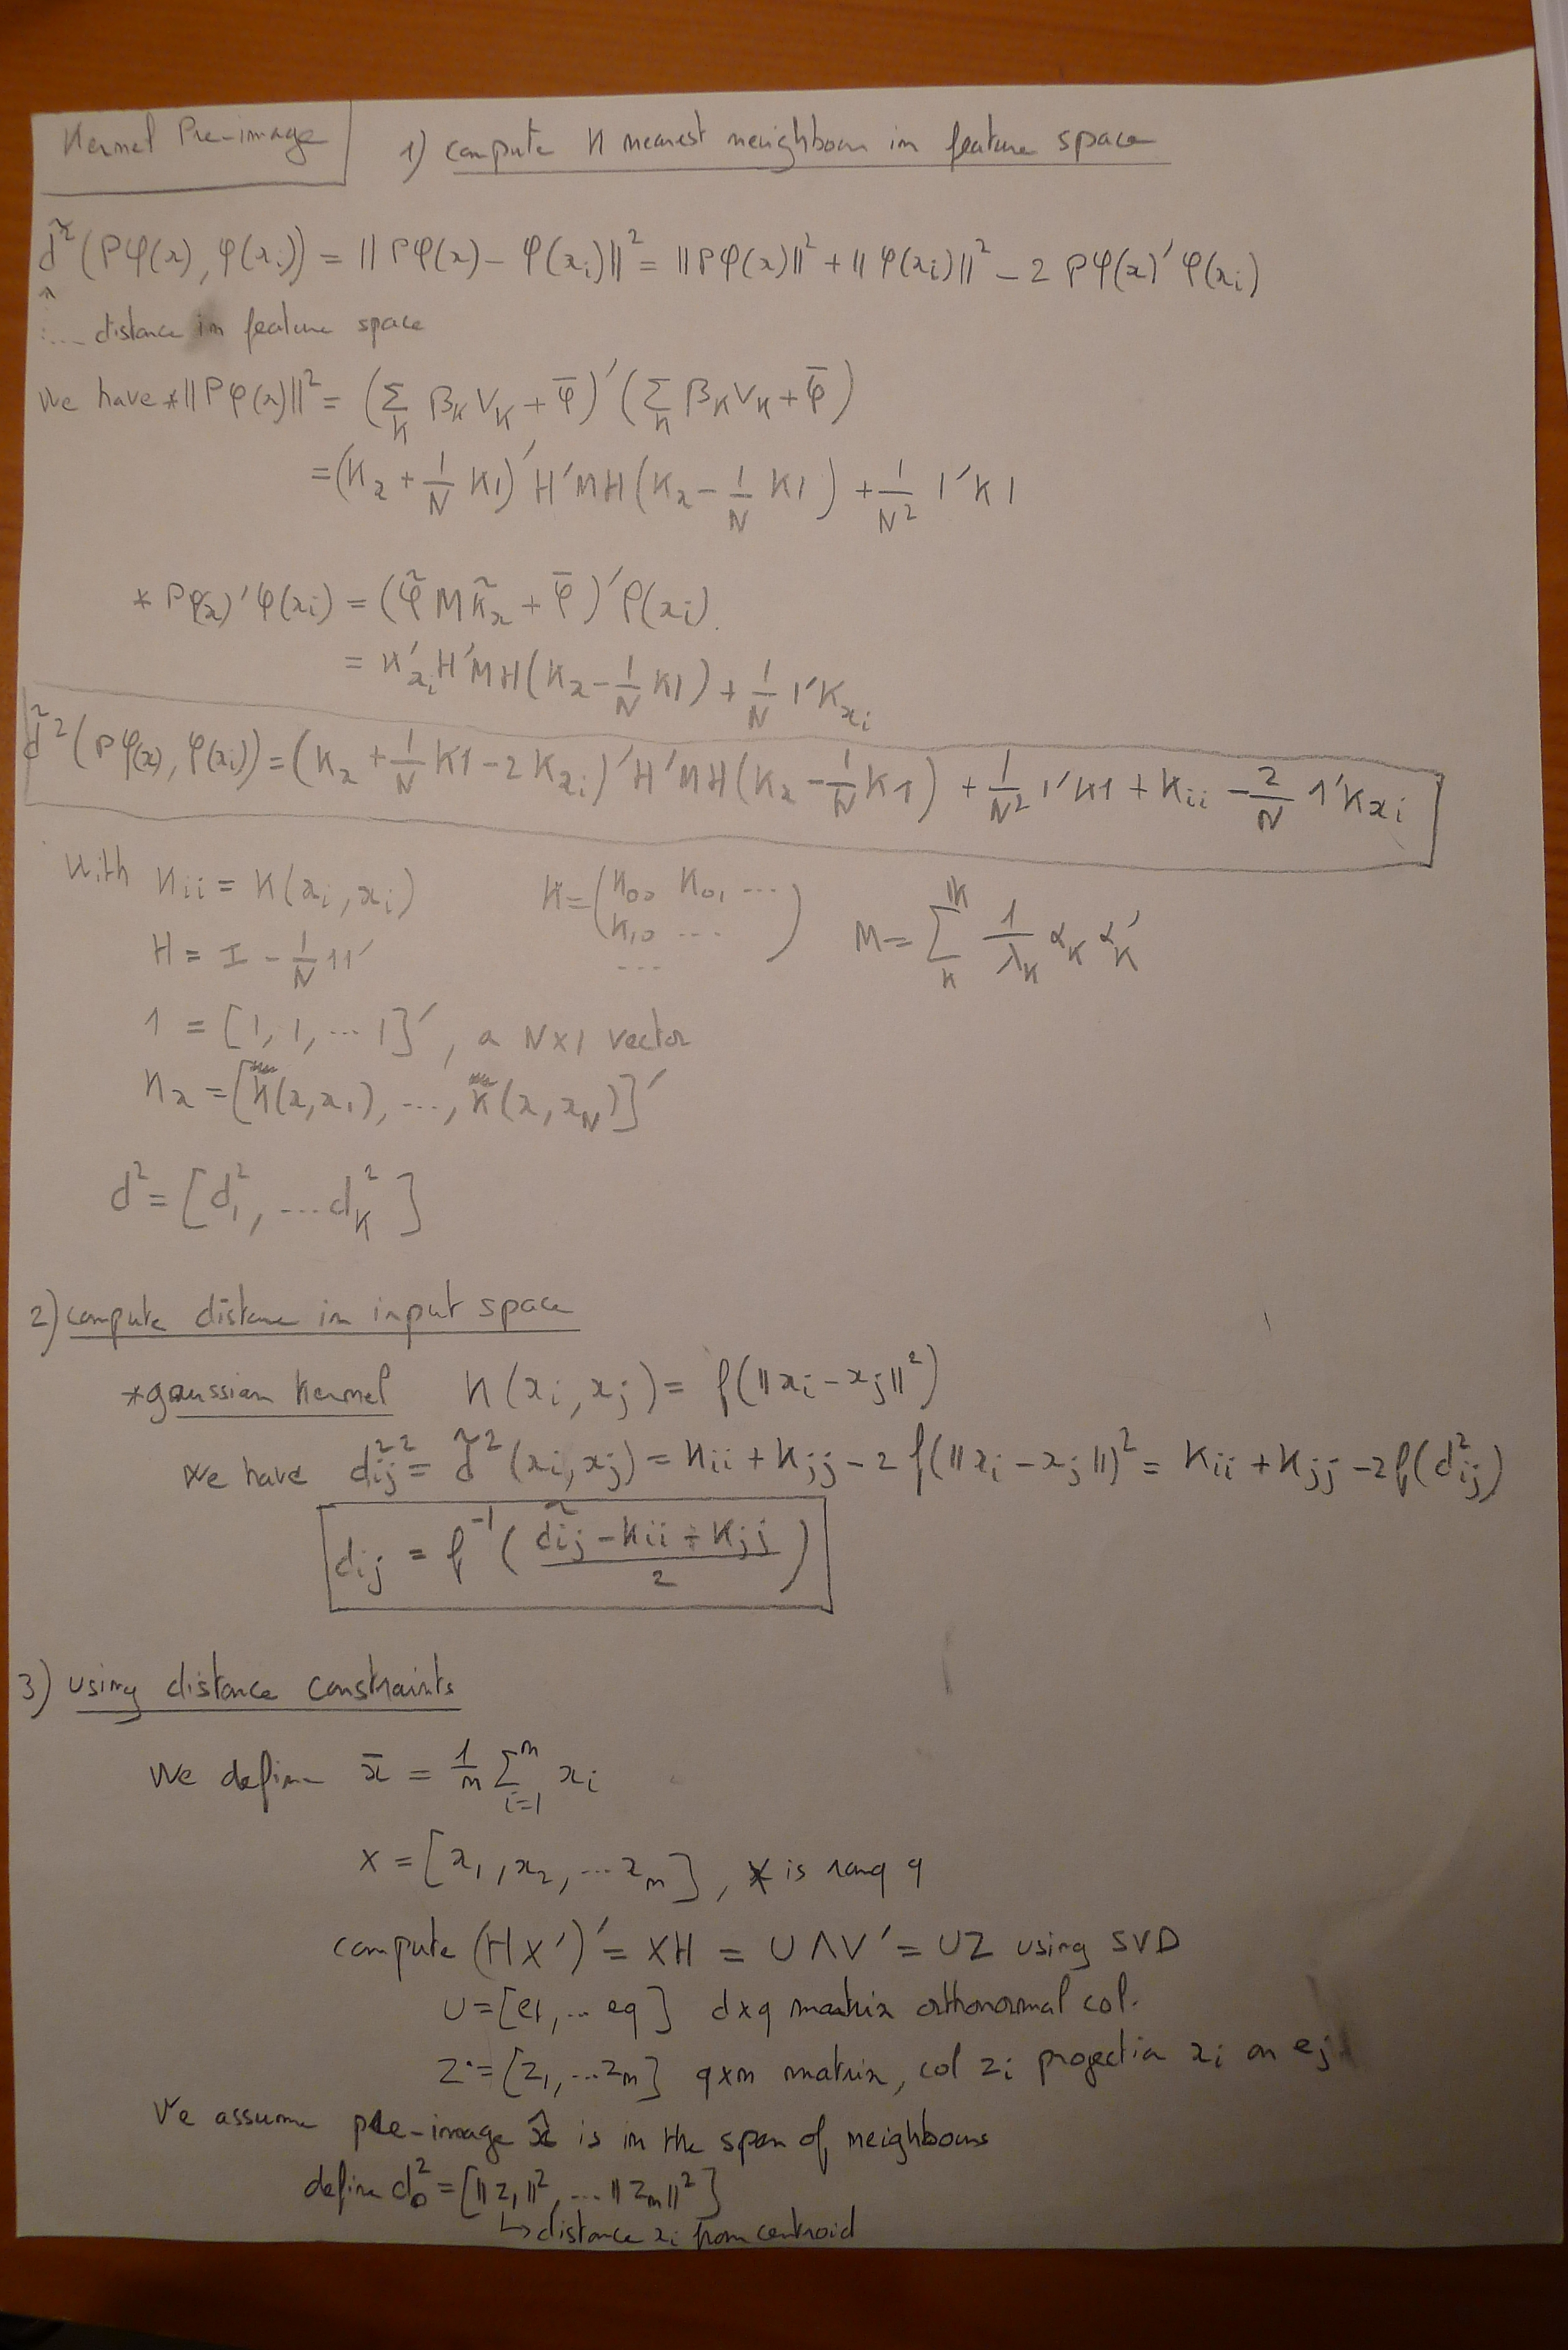 Kernel Pre-image
1) compute K nearest neighbour in feature space
d̃²(Pφ(x), φ(xᵢ)) = ||Pφ(x) − φ(xᵢ)||² = ||Pφ(x)||² + ||φ(xᵢ)||² − 2 Pφ(x)′φ(xᵢ)
distance in feature space
We have * ||Pφ(x)||² = (∑ₖ βₖVₖ + φ̄)′(∑ₖ βₖVₖ + φ̄)
= (Kₓ + 1/N K1)′H′MH(Kₓ − 1/N K1) + 1/N² 1′K1
* Pφ(x)′φ(xᵢ) = (φ̃ M k̃ₓ + φ̄)′φ(xᵢ).
= K′ₓᵢ H′MH(Kₓ − 1/N K1) + 1/N 1′Kₓᵢ
d̃²(Pφ(x), φ(xᵢ)) = (Kₓ + 1/N K1 − 2Kₓᵢ)′H′MH(Kₓ − 1/N K1) + 1/N² 1′K1 + Kᵢᵢ − 2/N 1′Kxᵢ
With Kᵢᵢ = K(xᵢ, xᵢ) K = (K₀₀ K₀₁ ... K₁₀ ... ...) M = ∑ₖ 1/λₖ αₖ αₖ′
H = I − 1/N 11′
1 = [1, 1, ... 1]′, a N×1 vector
Kₓ = [K(x, x₁), ..., K(x, x_N)]′
d² = [d₁², ... d_K²]
2) compute distance in input space
* gaussian kernel K(xᵢ, xⱼ) = f(||xᵢ − xⱼ||²)
We have d̃ᵢⱼ² = d̃²(xᵢ, xⱼ) = Kᵢᵢ + Kⱼⱼ − 2 f(||xᵢ − xⱼ||)² = Kᵢᵢ + Kⱼⱼ − 2f(dᵢⱼ²)
dᵢⱼ = f⁻¹((d̃ᵢⱼ − Kᵢᵢ + Kⱼⱼ)/2)
3) using distance constraints
We define x̄ = 1/n ∑ᵢ₌₁ⁿ xᵢ
X = [x₁, x₂, ... xₙ], X is rang q
compute (HX′)′ = XH = UΛV′ = UZ using SVD
U = [e1, ... eq] d×q matrix orthonormal col.
Z = [z₁, ... zₙ] q×n matrix, col zᵢ projection xᵢ on eⱼ
We assume pre-image x̂ is in the span of neighbours
define d₀² = [||z₁||², ... ||zₙ||²]
↳ distance xᵢ from centroid